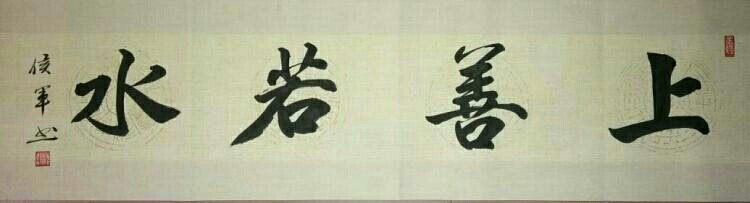 上善若水
侯军书